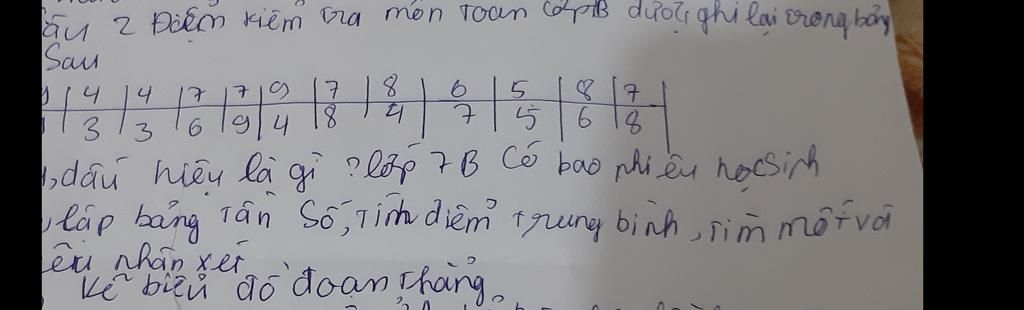 ấu 2 Điểm kiểm tra môn Toan lớp B được ghi lại trong bảng
Sau
9 | 4 | 4 | 7 | 7 | 9 | 7 | 8 | 6 | 5 | 8 | 7
3 | 3 | 6 | 9 | 4 | 8 | 4 | 7 | 5 | 6 | 8
dấu hiệu là gì ? lớp 7B Có bao nhiêu học sinh
lập bảng Tần Số, Tính điểm trung bình, Tìm mốt và
êu nhận xét
Kẽ biểu đồ đoạn thẳng.